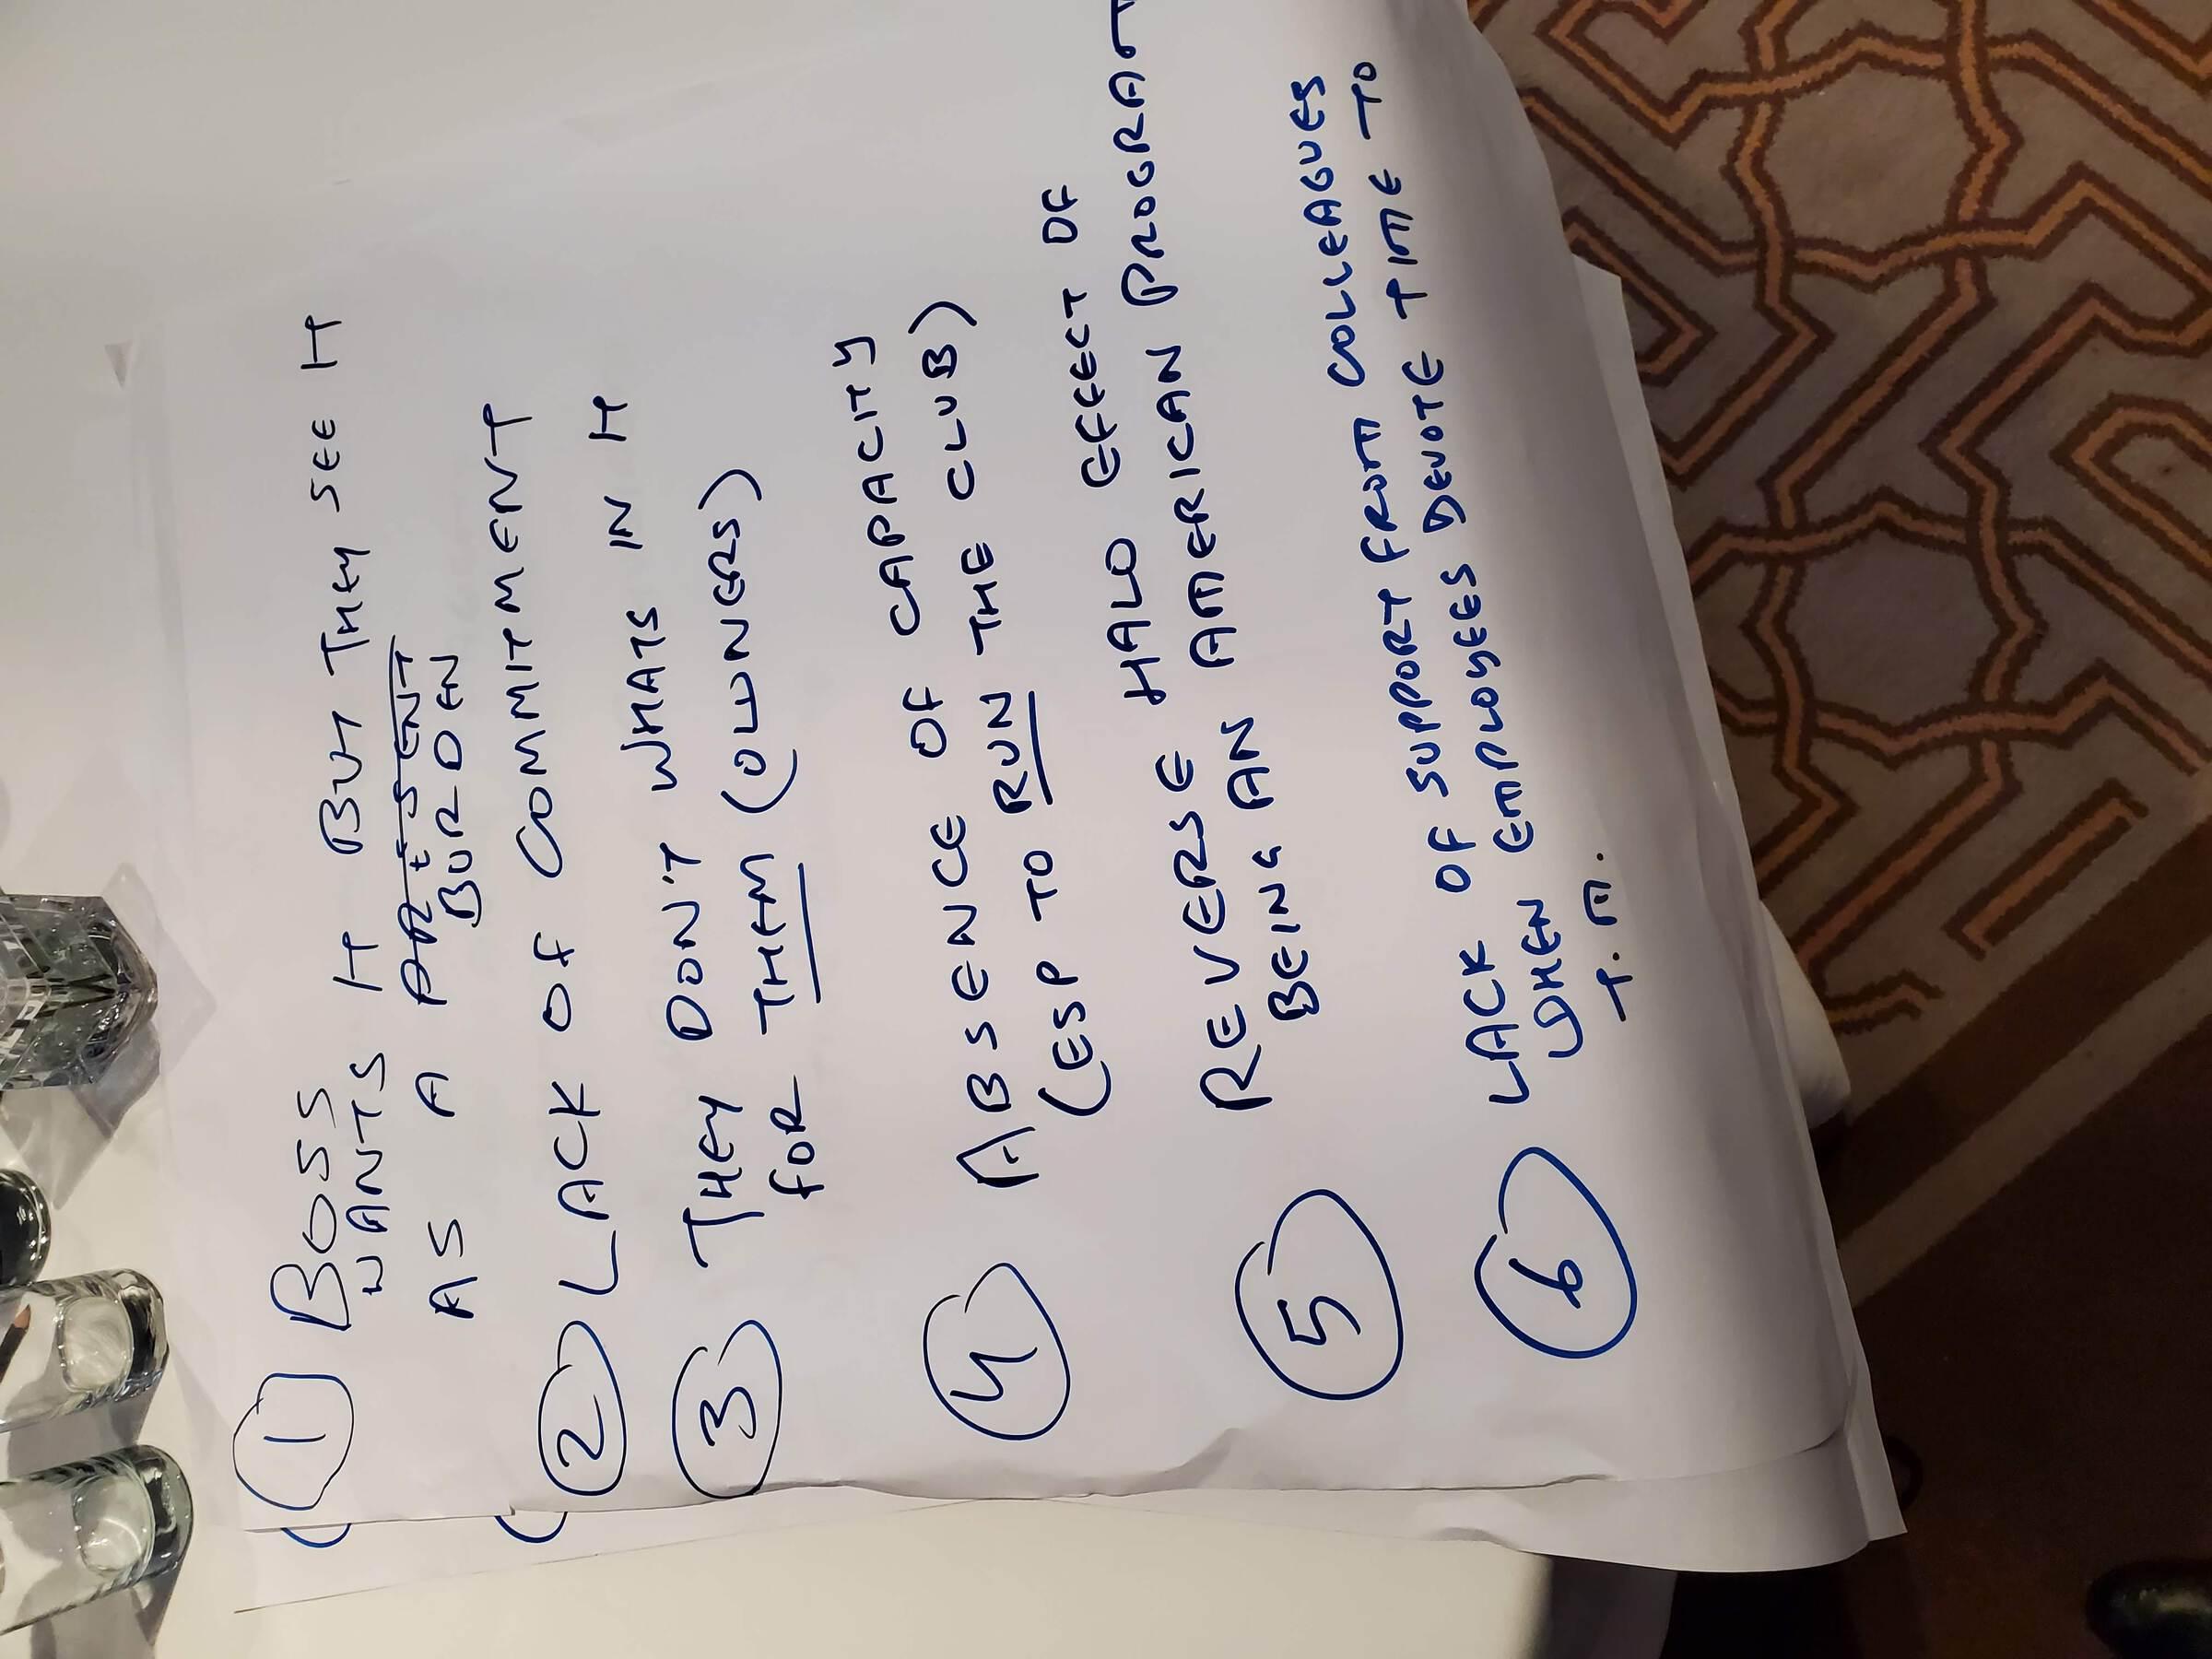 ① BOSS WANTS IT BUT THEY SEE IT
AS A ~~PRESENT~~ BURDEN
② LACK OF COMMITMENT
③ THEY DON'T WHATS IN IT
FOR THEM (OWNERS)
④ ABSENCE OF CAPACITY
(ESP TO RUN THE CLUB)
⑤ REVERSE HALO EFFECT OF
BEING AN AMERICAN PROGRAM
⑥ LACK OF SUPPORT FROM COLLEAGUES
WHEN EMPLOYEES DEVOTE TIME TO
T.M.